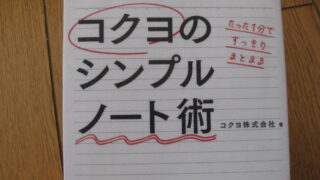 コクヨの
シンプル
ノート術
たった1分で
すっきり
まとまる
コクヨ株式会社 著